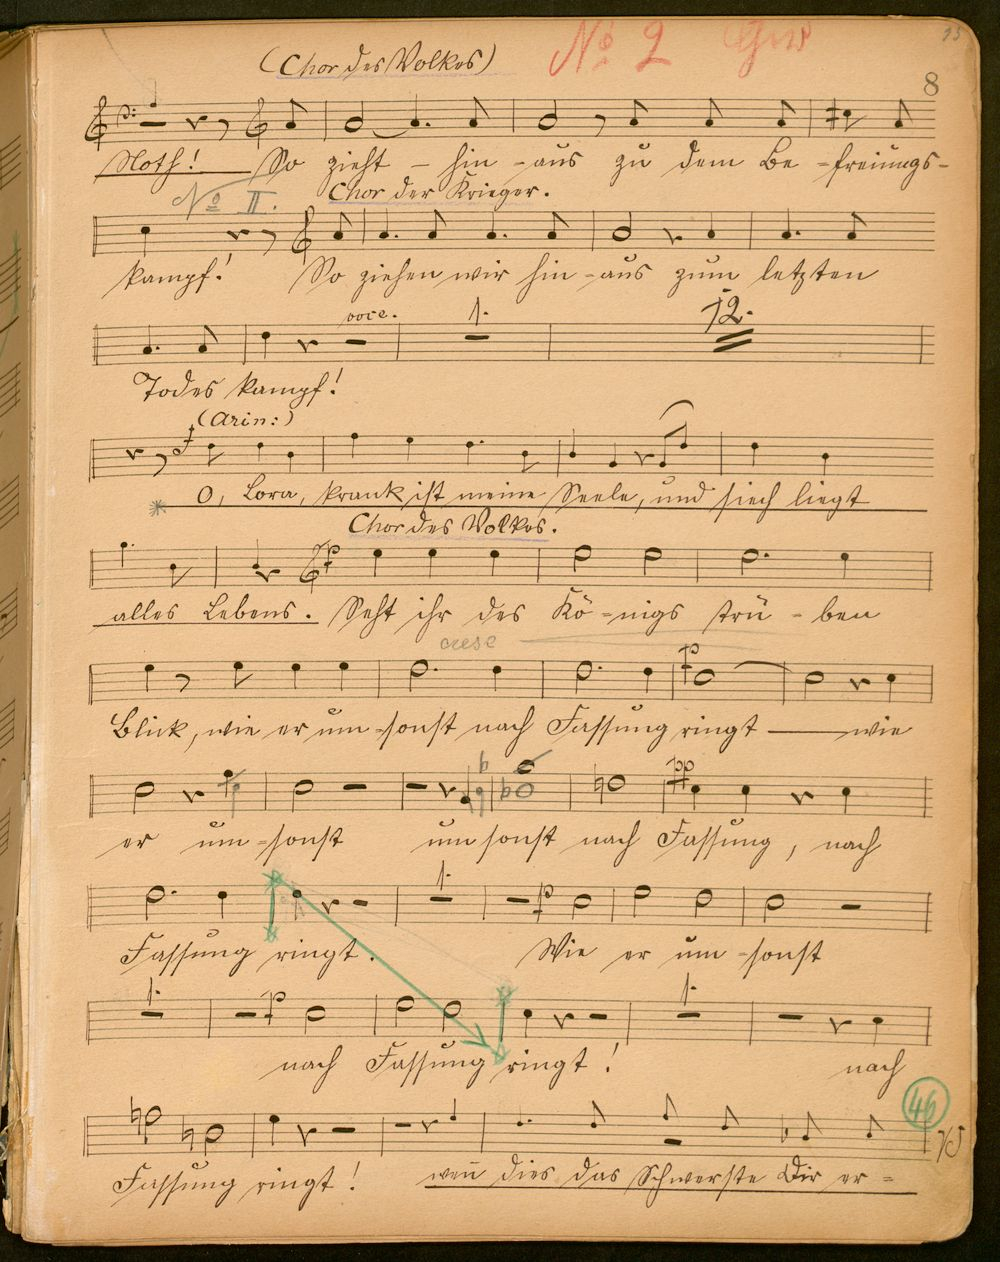 (Chor des Volkes) No. 2
8
Noth! So zieht - hin - aus zu dem Be - freiungs-
No II. Chor der Krieger.
kampf! So ziehen wir hin - aus zum letzten
voce. 1. 12.
Todes kampf!
(Arin:)
O, Lora, krank ist meine Seele, und siech liegt
Chor des Volkes.
alles Lebens. Seht ihr des Kö - nigs trü - ben
cresc
Blick, wie er um - sonst nach Fassung ringt — wie
pp
er um - sonst um sonst nach Fassung, nach
1.
Fassung ringt. Wie er um - sonst
1. 1.
nach Fassung ringt! nach
46
Fassung ringt! weñ dies das Schwerste Dir er =